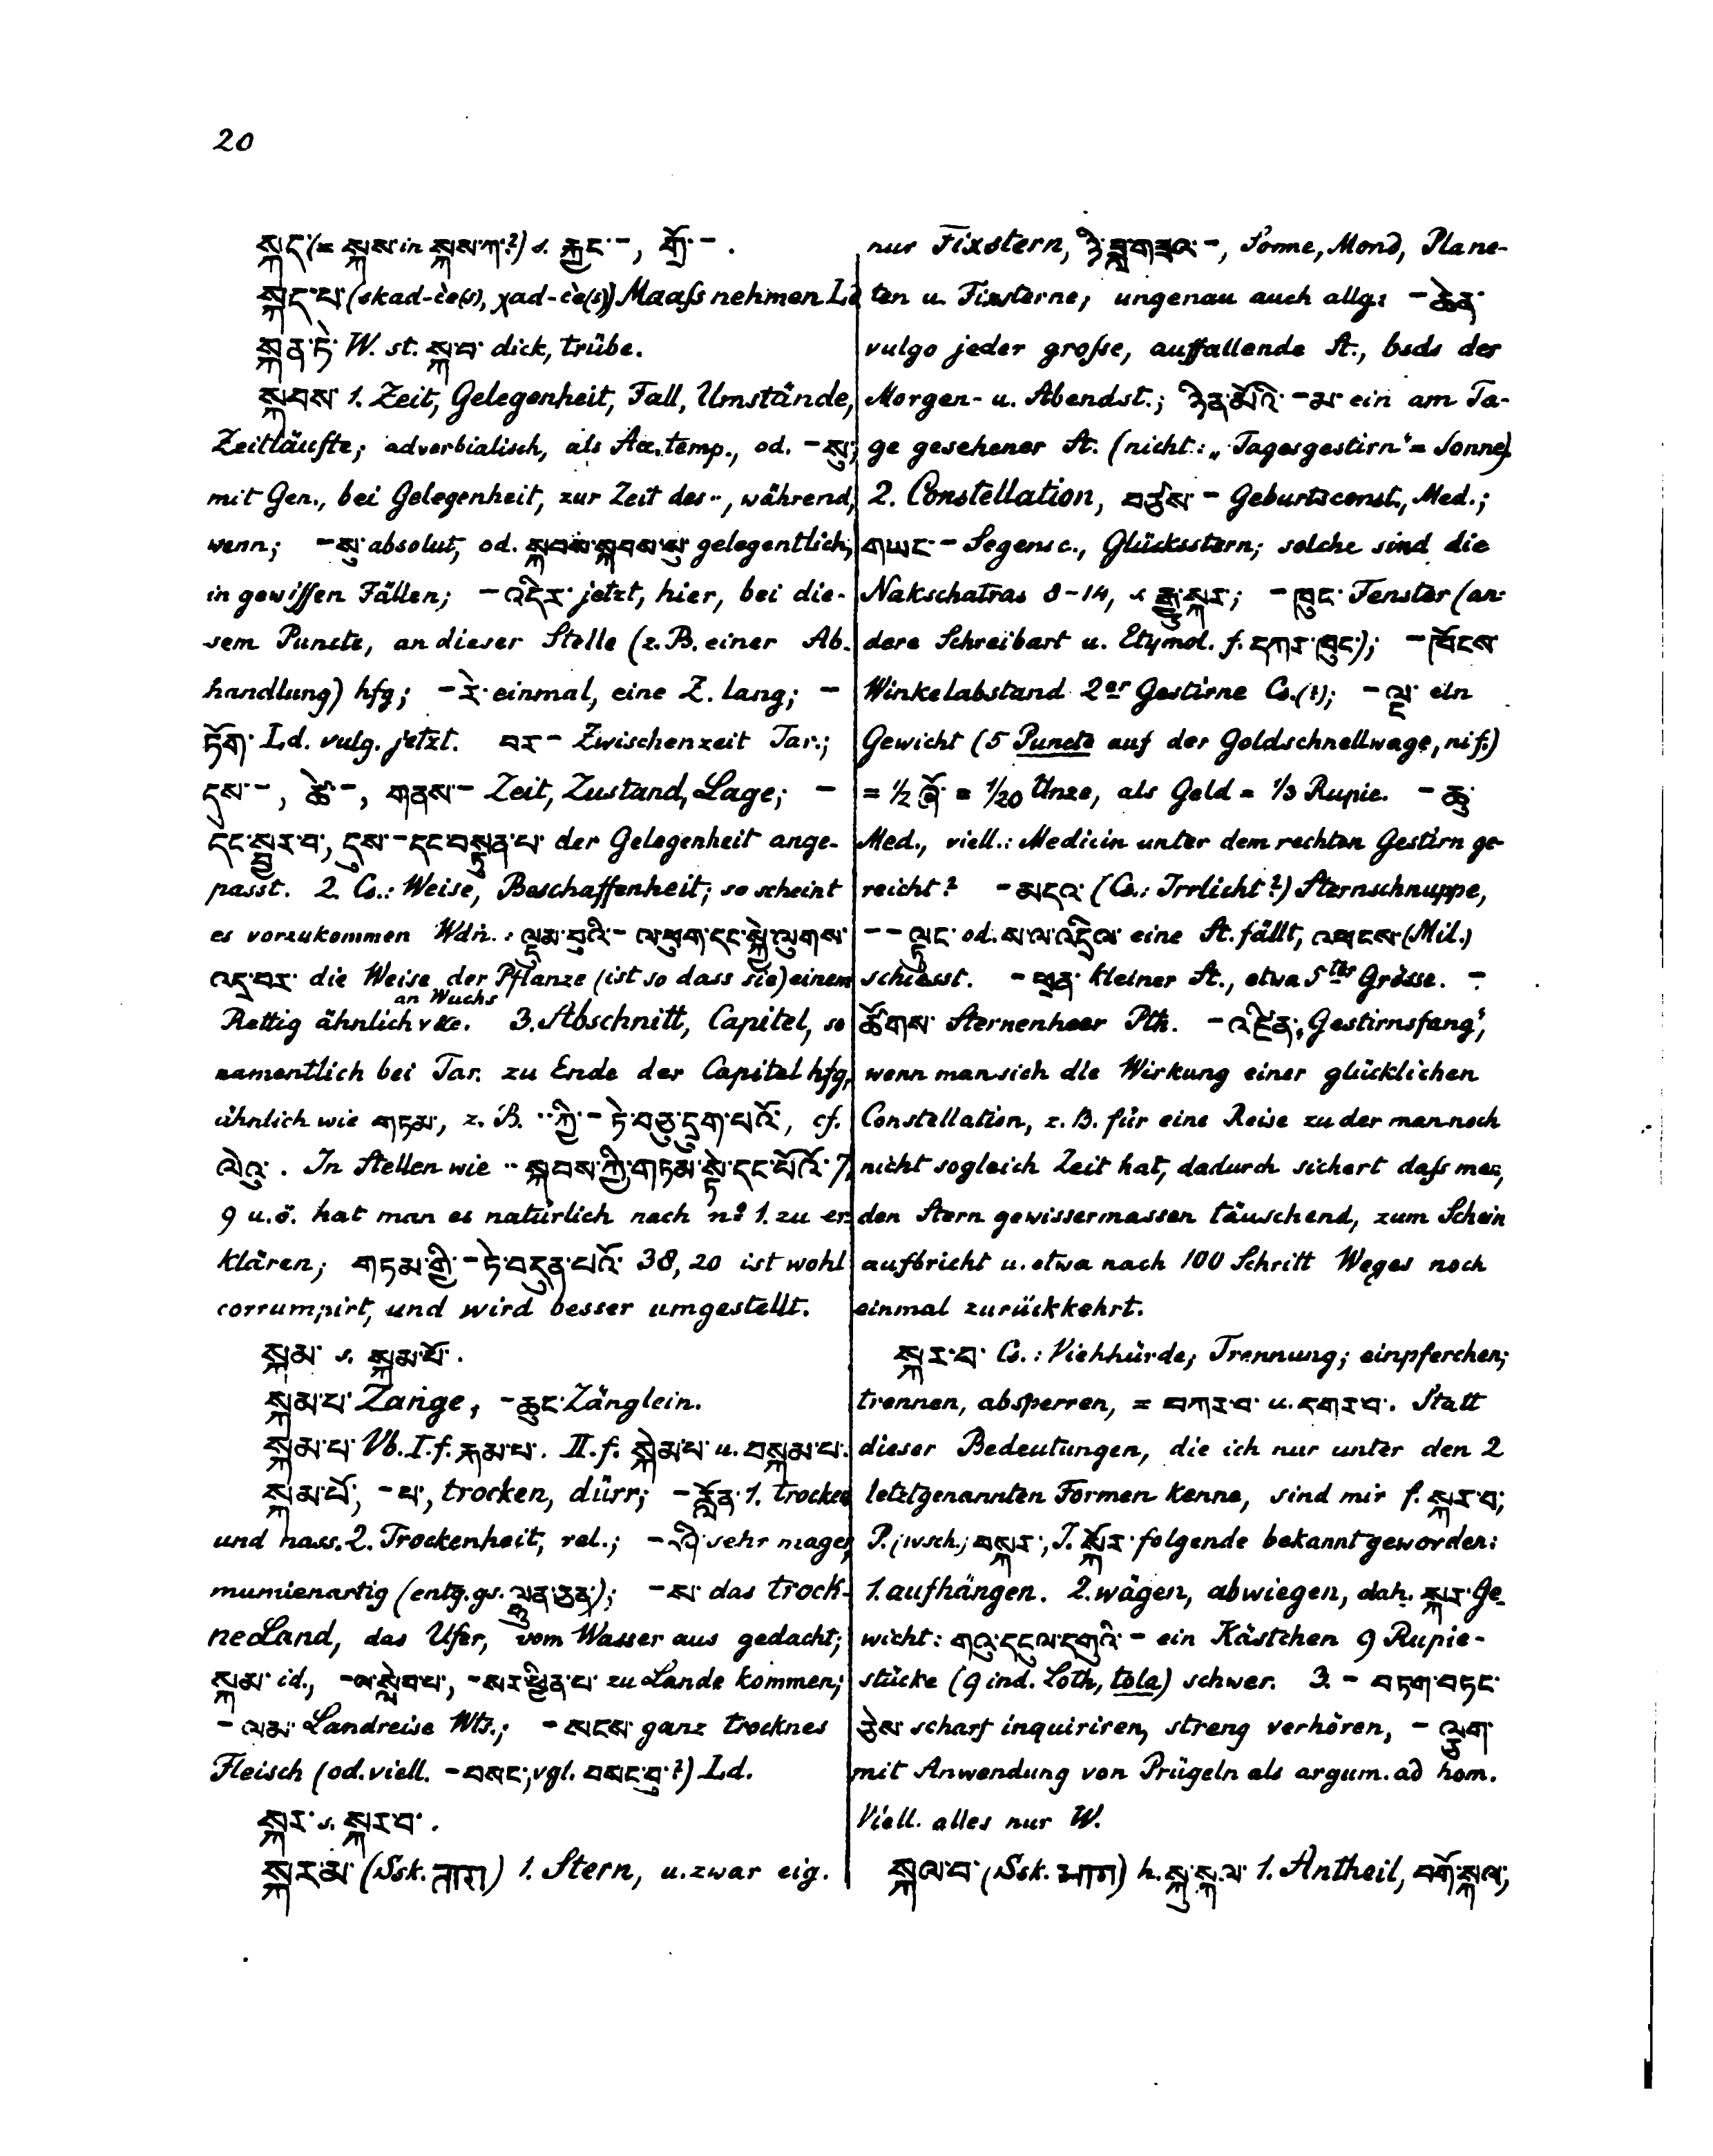 20
སྐད་ (= སྐས་ in སྐས་ཀ་?) s. རྐྱང་ –, གྲོ་ – .
སྐད་པ་ (skad-c̀e(s), χad-c̀e(s)) Maaſs nehmen Ld
སྐན་ཏེ་ W. st. སྐ་བ་ dick, trübe.
སྐབས་ 1. Zeit, Gelegenheit, Fall, Umstände,
Zeitläufte; adverbialisch, als Acc. temp., od. – སུ;
mit Gen., bei Gelegenheit, zur Zeit des··, während,
wenn; – སུ་ absolut, od. སྐབས་སྐབས་སུ་ gelegentlich,
in gewiſſen Fällen; – འདིར་ jetzt, hier, bei die-
sem Puncte, an dieser Stelle (z. B. einer Ab-
handlung) hfg; – རེ་ einmal, eine Z. lang; –
ཏོག་ Ld. vulg. jetzt. བར – Zwischenzeit Tar.;
དུས་ –, ཚེ་ –, གནས – Zeit, Zustand, Lage; –
དང་སྦྱར་བ, དུས་ – དང་བསྟུན་པ་ der Gelegenheit ange-
passt. 2. Cs.: Weise, Beschaffenheit; so scheint
es vorzukommen Wdṅ.: ལྡུམ་བུའི་ – ལ་ཕུག་དང་སྐྱེ་ལུགས་
འདྲ་བར་ die Weise der Pflanze (ist so dass sie) einem
an Wuchs
Rettig ähnlich v &c. 3. Abschnitt, Capitel, so
namentlich bei Tar. zu Ende der Capitel hfg,
ähnlich wie གཏམ, z. B. ·· ཀྱི་ – ཏེ་བཅུ་དྲུག་པའོ་, cf.
ལེའུ་ . In Stellen wie ·· སྐབས་ཀྱི་གཏམ་སྟེ་དང་པོའོ་ 7,
9 u. ö. hat man es natürlich nach no 1. zu er-
klären; གཏམ་གྱི་ – ཏེ་བདུན་པའོ་ 38, 20 ist wohl
corrumpirt, und wird besser umgestellt.
སྐམ་ s. སྐམ་པོ་ .
སྐམ་པ་ Zange, – ཆུང་ Zänglein.
སྐམ་པ་ Vb. I. f. རྐམ་པ་. II. f. སྐེམ་པ་ u. བསྐམ་པ་.
སྐམ་པོ་, – པ་, trocken, dürr; – རློན་ 1. trocken
und nass. 2. Trockenheit, rel.; – sehr mager,
mumienartig (entg. gs. ); – ས་ das trock-
ne Land, das Ufer, vom Wasser aus gedacht;
སྐམ་ id., – ལ་སླེབ་པ་, – སར་ཕྱིན་པ་ zu Lande kommen;
– ལམ་ Landreise Wts.; – སངས་ ganz trocknes
Fleisch (od. viell. – བསང་; vgl. བསང་བུ་?) Ld.
སྐར་ s. སྐར་བ་ .
སྐར་མ་ (Ssk. तारा) 1. Stern, u. zwar eig.
nur Fixstern, ཉི་ཟླ་གཟའ་ –, Sonne, Mond, Plane-
ten u. Fixsterne; ungenau auch allg: – ཆེན་
vulgo jeder groſse, auffallende St., bsds der
Morgen- u. Abendst.; ཉིན་མོའི་ – མ་ ein am Ta-
ge gesehener St. (nicht: „Tagesgestirn“ = Sonne).
2. Constellation, བཙས་ – Geburtsconst., Med.;
གཡང་ – Segens c., Glücksstern; solche sind die
Nakschatras 8–14, s རྒྱུ་སྐར་; – ཁུང་ Fenster (an-
dere Schreibart u. Etymol. f. དཀར་ཁུང་); – ཁོངས་
Winkelabstand 2er Gestirne Cs. (?); – ལྔ་ ein
Gewicht (5 Puncte auf der Goldschnellwage, nif.)
= ½ ཞོ་ = 1/20 Unze, als Geld = ⅓ Rupie. – ཆུ་
Med., viell.: Medicin unter dem rechten Gestirn ge-
reicht? – མདའ་ (Cs.: Irrlicht?) Sternschnuppe,
– – ལྟུང་ od. ས་ལ་འདྲིལ་ eine St. fällt, འཕངས་ (Mil.)
schiesst. – ཕྲན་ kleiner St., etwa 5ter Grösse. –
ཚོགས་ Sternenheer Pth. – འཛིན་ „Gestirnsfang“,
wenn man sich die Wirkung einer glücklichen
Constellation, z. B. für eine Reise zu der man noch
nicht sogleich Zeit hat, dadurch sichert daſs man,
den Stern gewissermassen täuschend, zum Schein
aufbricht u. etwa nach 100 Schritt Weges noch
einmal zurückkehrt.
སྐར་བ་ Cs.: Viehhürde; Trennung; einpferchen;
trennen, absperren, = བཀར་བ་ u. དགར་བ་. Statt
dieser Bedeutungen, die ich nur unter den 2
letztgenannten Formen kenne, sind mir f. སྐར་བ,
P. (wsch.) བསྐར་, I. སྐོར་ folgende bekannt geworden:
1. aufhängen. 2. wägen, abwiegen, dah. སྐར་ Ge-
wicht: གའུ་དངུལ་དགུའི་ – ein Kästchen 9 Rupie-
stücke (9 ind. Loth, tola) schwer. 3. – བཏག་བཏང་
ཅེས་ scharf inquiriren, streng verhören, – ལྕག་
mit Anwendung von Prügeln als argum. ad hom.
Viell. alles nur W.
སྐལ་བ་ (Ssk. भाग) h. སྐུ་སྐལ་ 1. Antheil, བགོ་སྐལ,